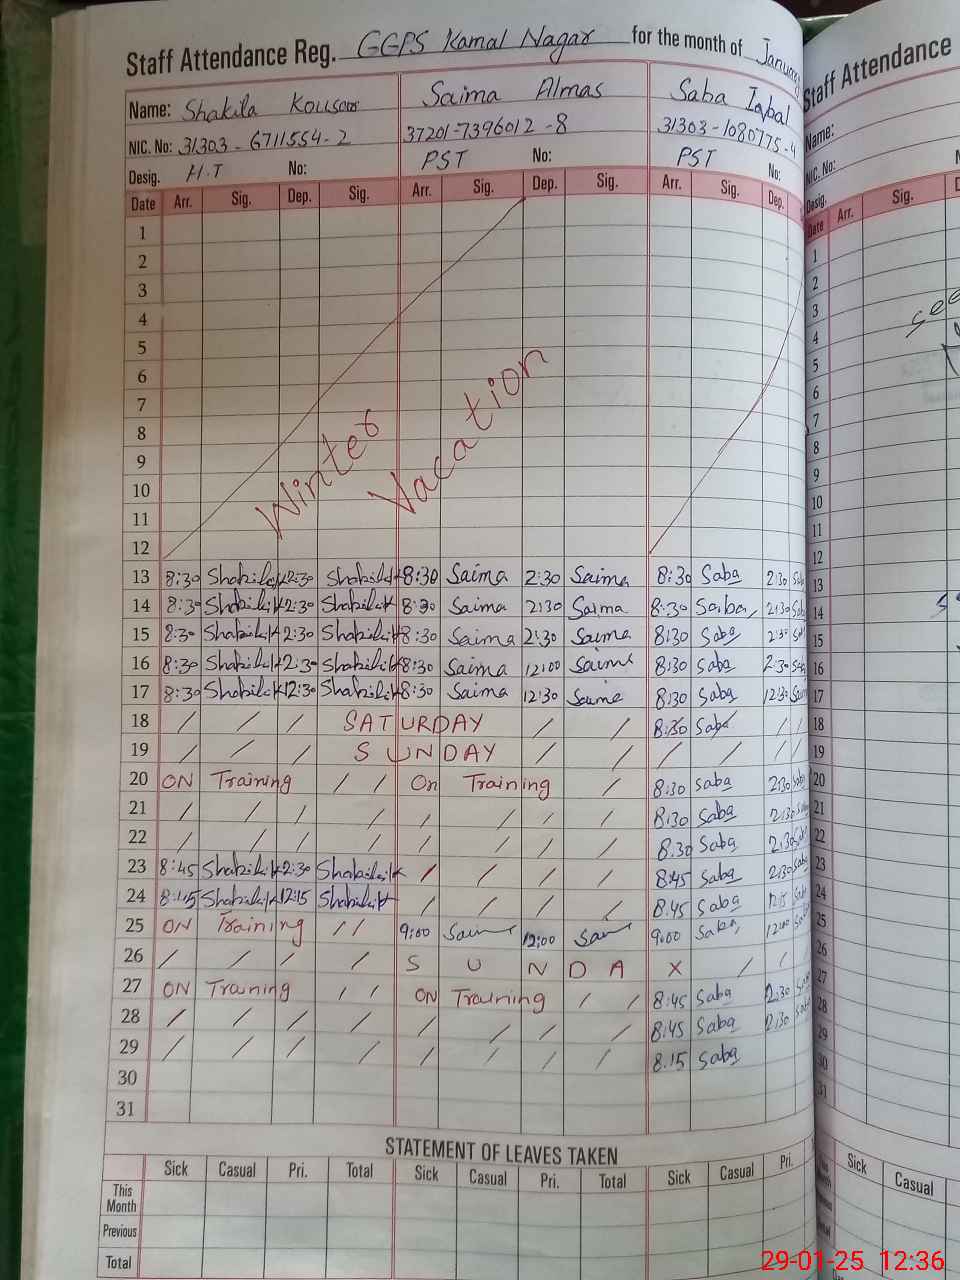 Staff Attendance Reg. GGPS Kamal Nagar for the month of January
Name: Shakila Kousar Saima Almas Saba Iqbal
NIC. No: 31303-6711554-2 37201-7396012-8 31303-1080775-4
Desig. H.T No: PST No: PST No:
Date Arr. Sig. Dep. Sig. Arr. Sig. Dep. Sig. Arr. Sig. Dep.
1
2
3
4
5
6
7
8
9
10
11
12
Winter Vacation
13 8:30 Shakila K 2:30 Shakila K 8:30 Saima 2:30 Saima 8:30 Saba 2:30
14 8:30 Shakila K 2:30 Shakila K 8:30 Saima 2:30 Saima 8:30 Saba 2:30
15 8:30 Shakila K 2:30 Shakila K 8:30 Saima 2:30 Saima 8:30 Saba 2:30
16 8:30 Shakila K 2:30 Shakila K 8:30 Saima 12:00 Saima 8:30 Saba 2:30
17 8:30 Shakila K 12:30 Shakila K 8:30 Saima 12:30 Saima 8:30 Saba 12:30
18 / / / SATURDAY / / 8:30 Saba / /
19 / / / SUNDAY / / / / / /
20 ON Training / / On Training / 8:30 Saba 2:30 Saba
21 / / / / / / / / 8:30 Saba 2:30
22 / / / / / / / / 8:30 Saba 2:30
23 8:45 Shakila K 2:30 Shakila K / / / / 8:45 Saba 2:30 Saba
24 8:45 Shakila K 12:15 Shakila K / / / / 8:45 Saba 12:15
25 ON Training / / 9:00 Saima 12:00 9:00 Saba 12:00
26 / / / / S U N D A Y / /
27 ON Training / / ON Training / / 8:45 Saba 2:30
28 / / / / / / / / 8:45 Saba 2:30
29 / / / / / / / / 8.15 Saba
30
31
STATEMENT OF LEAVES TAKEN
Sick Casual Pri. Total Sick Casual Pri. Total Sick Casual Pri.
This Month
Previous
Total
Staff Attendance
Name:
NIC. No:
Desig.
Date Arr. Sig.
1
2
3
4
5
6
7
8
9
10
11
12
13
14
15
16
17
18
19
20
21
22
23
24
25
26
27
28
29
30
31
Sick Casual
29-01-25 12:36